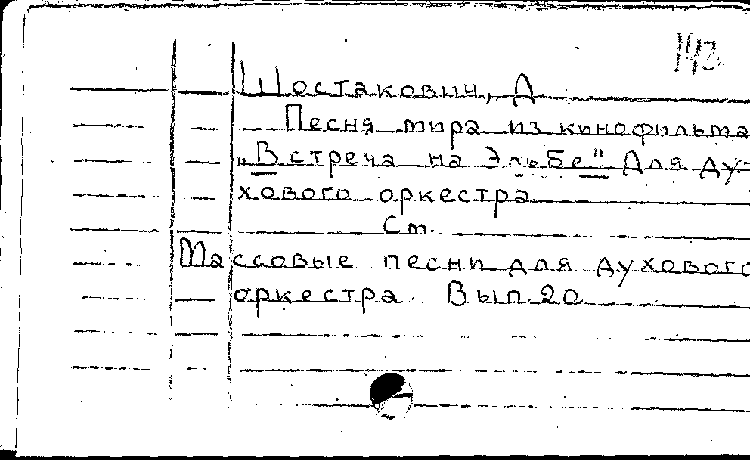 142
Шостакович, Д
Песня мира из кинофильма
„Встреча на Эльбе" Для ду-
хового оркестра
См.
Массовые песни для духового
оркестра. Вып. 20